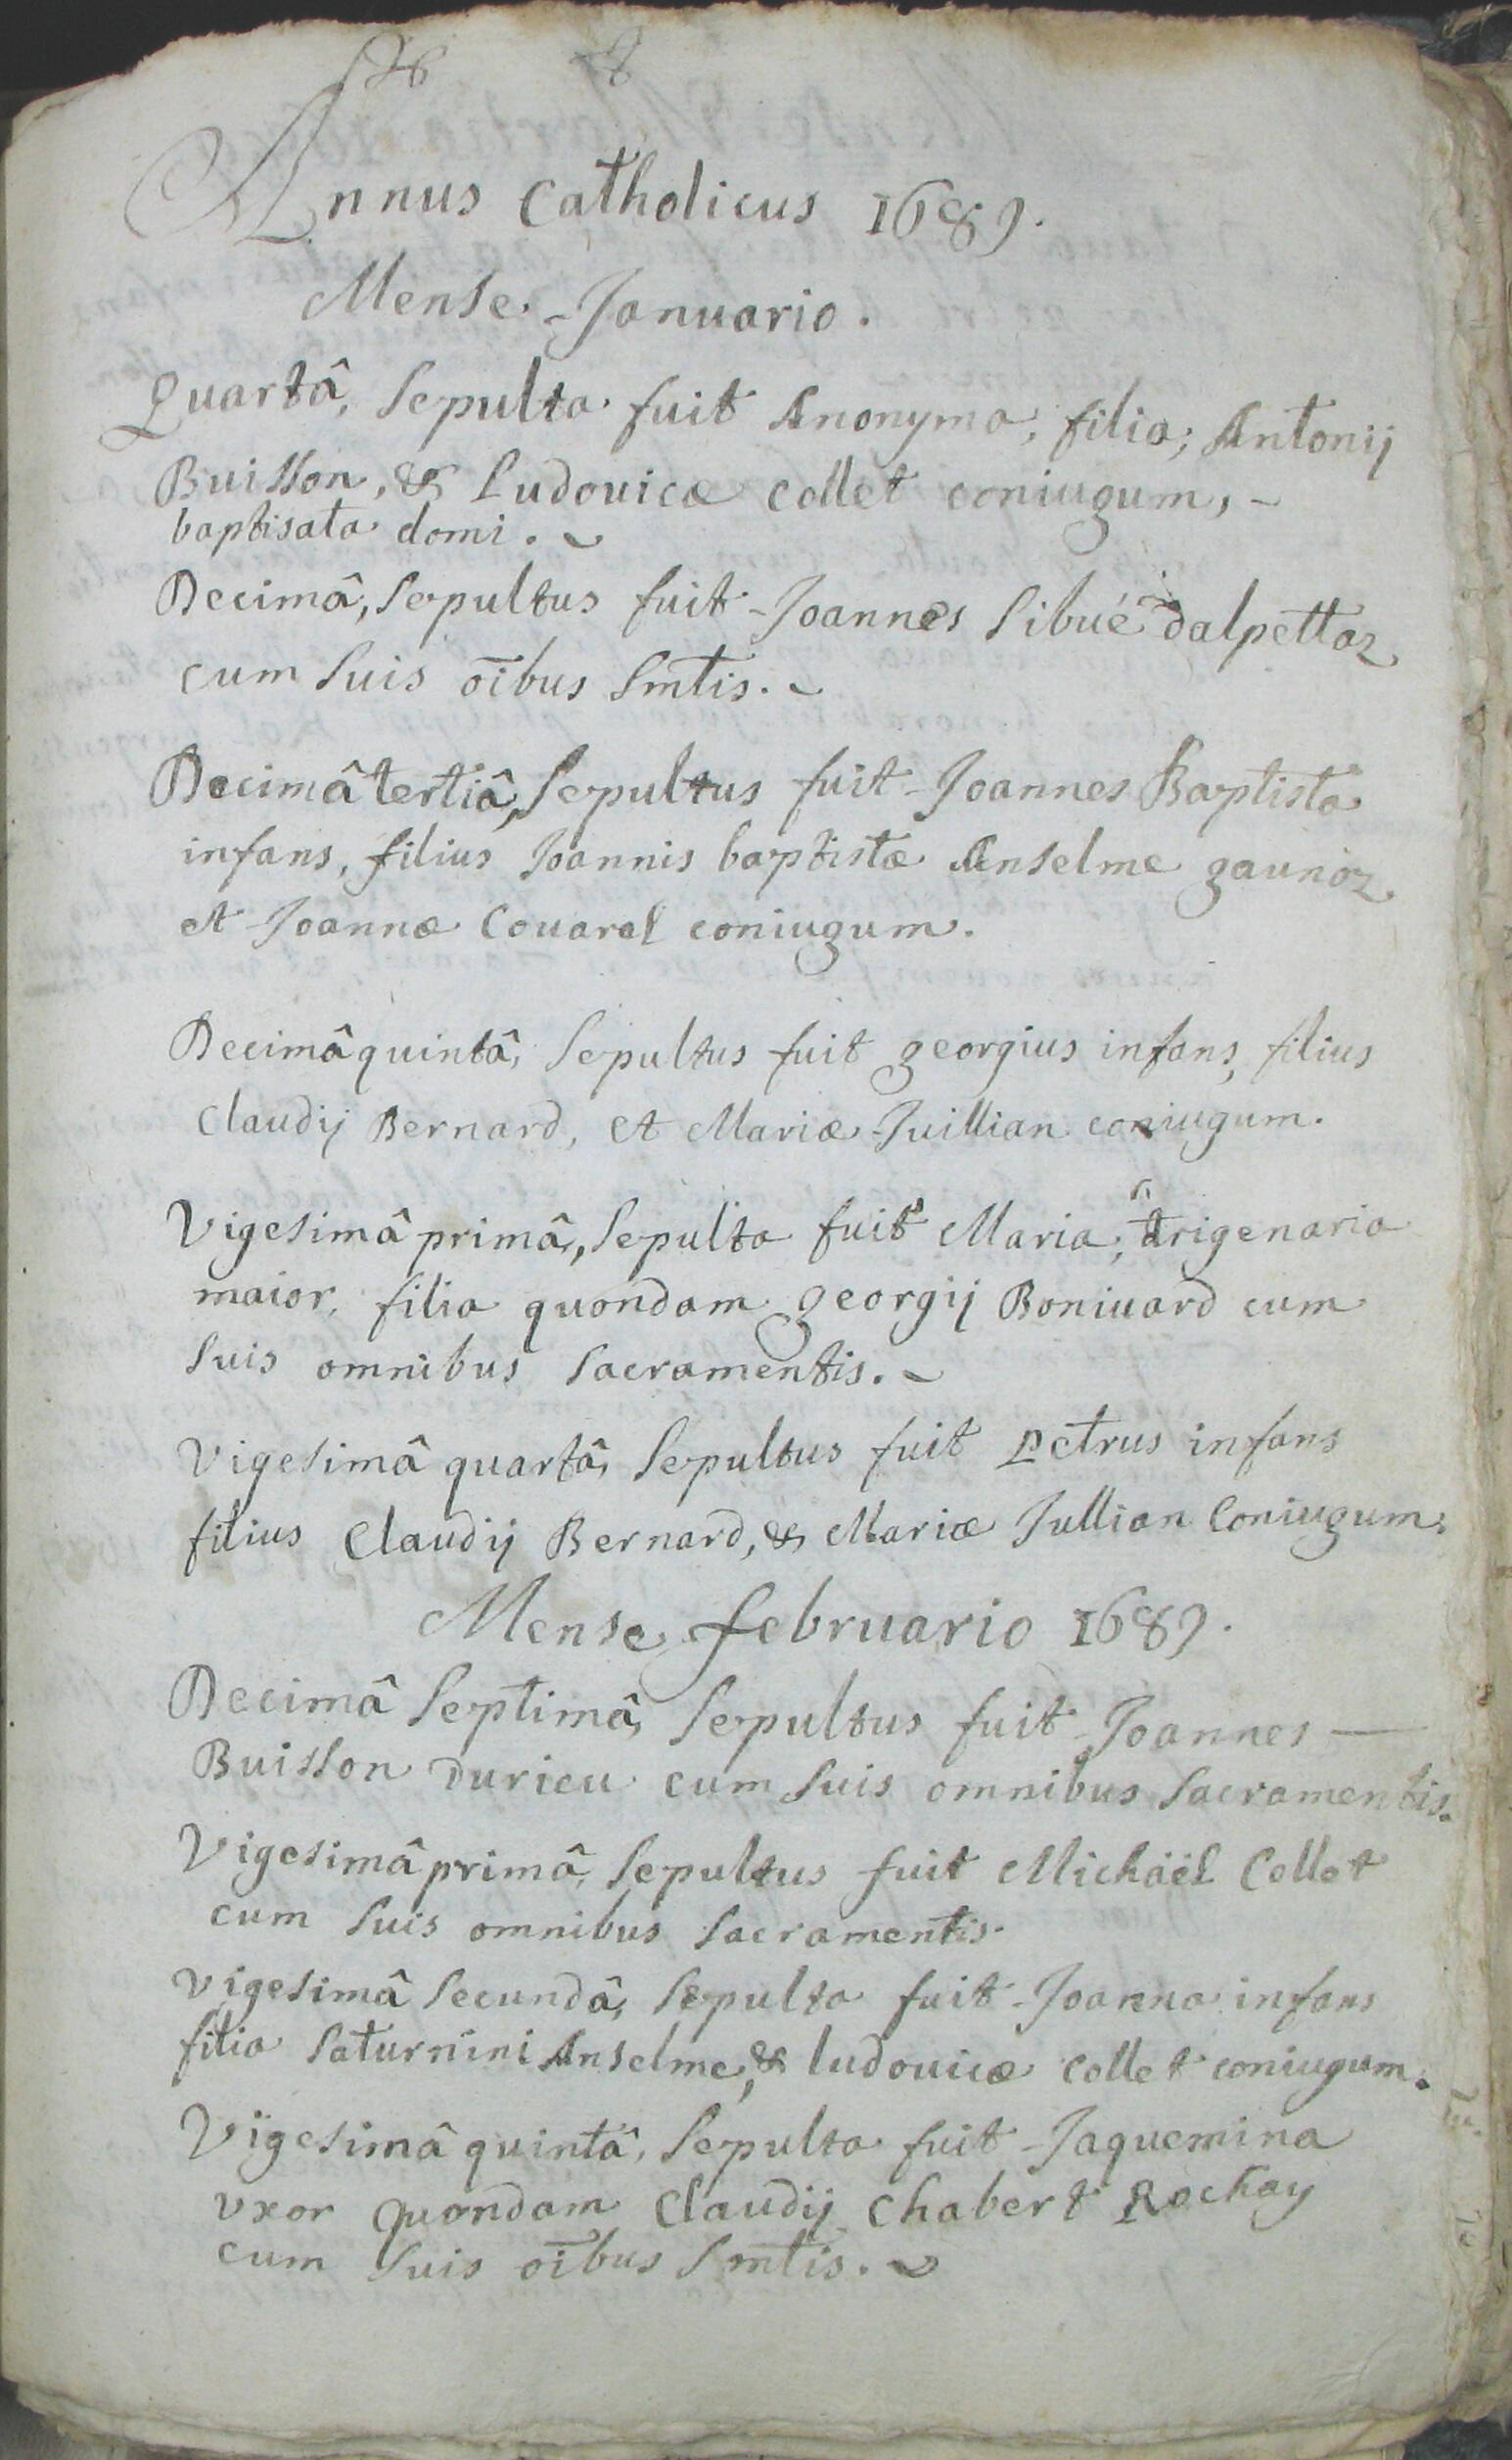 Annus Catholicus 1689.
Mense Januario.
Quartâ, sepulta fuit Anonyma, filia, Antonij
Buisson, & Ludovicæ Collet coniugum, -
baptisata domi.
Decimâ, sepultus fuit Joannes Sibué dalpettaz
cum suis oībus Smtis.
Decimâ tertiâ, sepultus fuit Joannes Baptista
infans, filius Joannis baptistæ Anselme gaunoz
et Joannæ Couarel coniugum.
Decimâ quintâ, sepultus fuit georgius infans, filius
Claudij Bernard, et Mariæ Juillian coniugum.
Vigesimâ primâ, sepulta fuit Maria, trigenaria
maior, filia quondam georgij Boniuard cum
suis omnibus sacramentis.
Vigesimâ quartâ, sepultus fuit Petrus infans
filius Claudij Bernard, & Mariæ Jullian Coniugum.
Mense februario 1689.
Decimâ septimâ, sepultus fuit Joannes —
Buisson durieu cum suis omnibus sacramentis.
Vigesimâ primâ, sepultus fuit Michäël Collet
cum suis omnibus sacramentis.
Vigesimâ secundâ, sepulta fuit Joanna infans
filia Saturnini Anselme, & ludouicæ Collet coniugum.
Vigesimâ quintâ, sepulta fuit Jaquemina
vxor quondam Claudij Chabert Rochay
cum suis oībus Smtis.